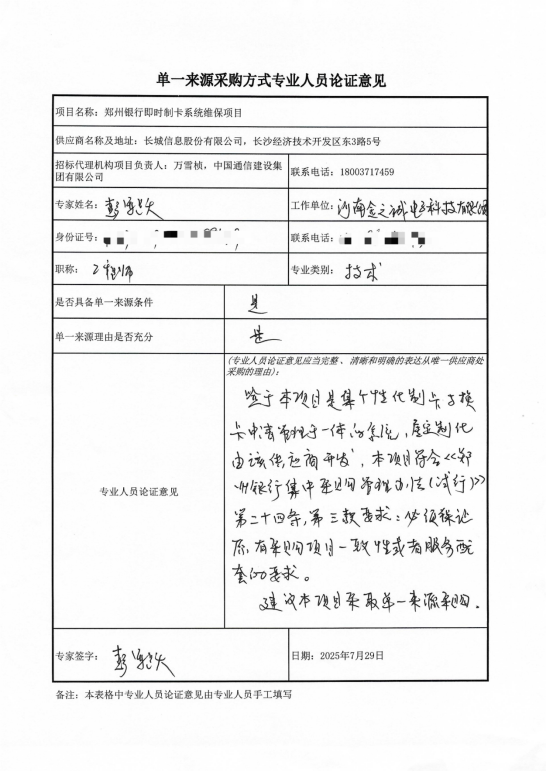 单一来源采购方式专业人员论证意见
项目名称：郑州银行即时制卡系统维保项目
供应商名称及地址：长城信息股份有限公司，长沙经济技术开发区东3路5号
招标代理机构项目负责人：万雪桢，中国通信建设集
团有限公司
联系电话：18003717459
专家姓名：彭
工作单位：河南金之诚电子科技有限公司
身份证号：
联系电话：
职称：工程师
专业类别：技术
是否具备单一来源条件
是
单一来源理由是否充分
是
专业人员论证意见
(专业人员论证意见应当完整、清晰和明确的表达从唯一供应商处
采购的理由)：
鉴于本项目是集个性化制卡与换
卡申请管理于一体的系统，属定制化
由该供应商开发，本项目符合《郑
州银行集中采购管理办法(试行)》
第二十四条，第三款要求：必须保证
原有采购项目一致性或者服务配
套的要求。
建议本项目采取单一来源采购。
专家签字：彭
日期：2025年7月29日
备注：本表格中专业人员论证意见由专业人员手工填写